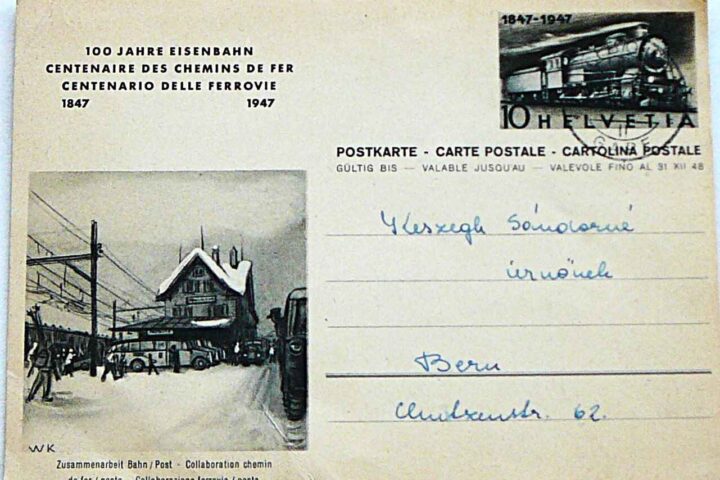 100 JAHRE EISENBAHN
CENTENAIRE DES CHEMINS DE FER
CENTENARIO DELLE FERROVIE
1847 1947
1847-1947
10 HELVETIA
GARE
POSTKARTE - CARTE POSTALE - CARTOLINA POSTALE
GÜLTIG BIS — VALABLE JUSQU'AU — VALEVOLE FINO AL 31 XII 48
Keszegh Sándorné
úrnőnek
Bern
62.
WK
Zusammenarbeit Bahn/Post - Collaboration chemin
de fer/poste - Collaborazione ferrovia/posta